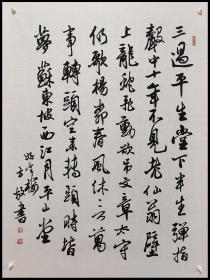 三過平生堂下半生彈指
聲中十年不見老仙翁壁
上龍蛇飛動欲吊文章太守
仍歌楊柳春風休言萬
事轉頭空未轉頭時皆
夢蘇東坡西江月平山堂
書